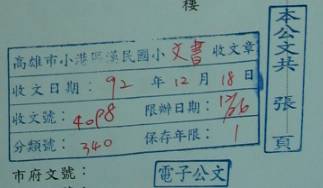 樓
高雄市小港區漢民國小文書收文章
收文日期：92年12月18日
收文號：4098 限辦日期：12/26
分類號：340 保存年限：1
市府文號：
電子公文
本公文共 張 頁